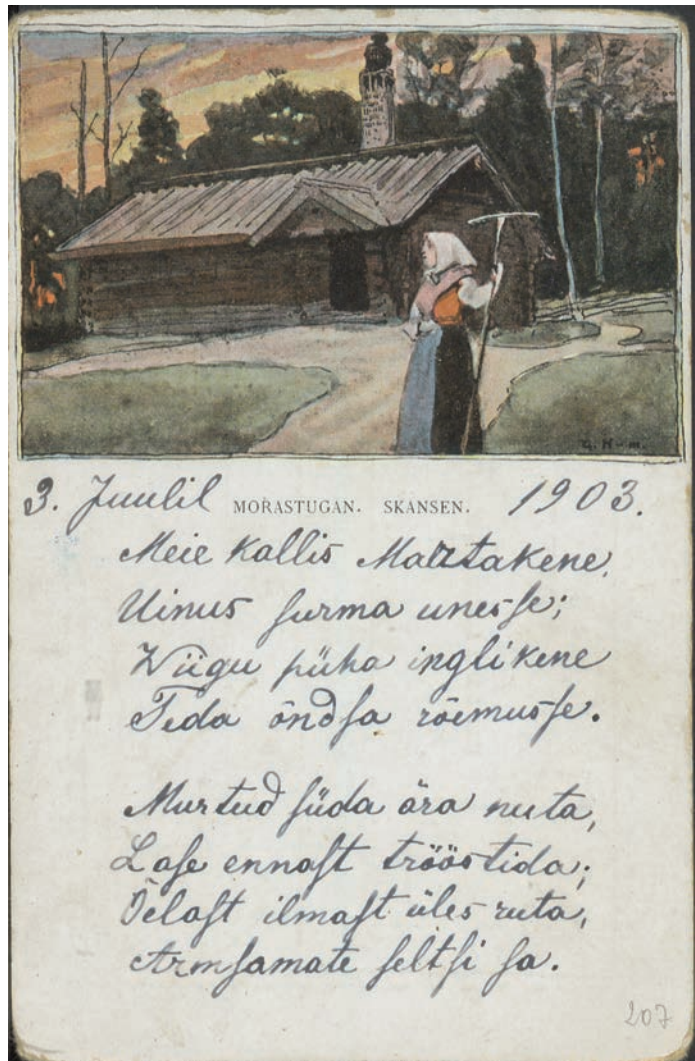 G. H-m.
3. Juulil MORASTUGAN. SKANSEN. 1903.
Meie kallis Martakene,
Uinus surma unesse;
Wiigu püha inglikene
Teda õndsa rõemusse.
Murtud süda ära nuta,
Lase ennast tröös tida;
Õelast ilmast üles ruta,
Armsamate seltsi sa.
207